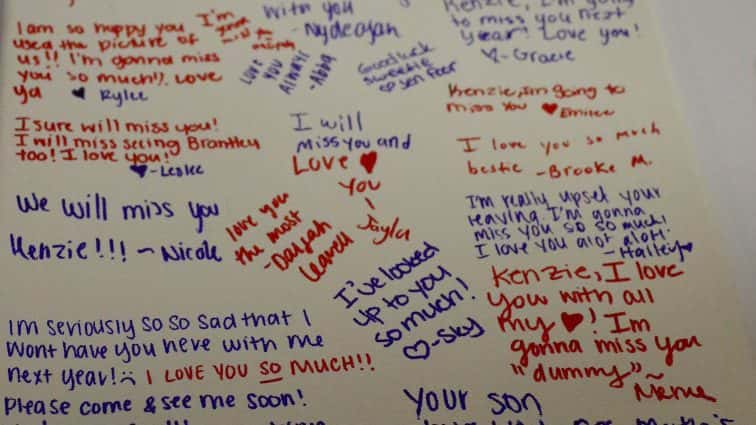 I am so happy you
used the picture of
us!! I'm gonna miss
you so much!! Love
ya ♥ Rylee
I'm
gonna
miss ya
with you
- Nydeajah
Love
you
Always
-Abba
Goodluck
sweetie
Kenzie, I'm going
to miss you next
year! Love you!
♡-Gracie
Kenzie, I'm going to
miss you ♥ Emilee
I sure will miss you!
I will miss seeing Brantley
too! I love you!
♥-Leslee
I will
Miss you and
Love ♥
You
- Jayla
I love you so much
bestie -Brooke M.
We will miss you
Kenzie!!! ~Nicole
love you
the most
-Daijah
Leavell
I'm really upset your
leaving. I'm gonna
miss you so so much,
I love you alot alot!
-Hailey♥
I've looked
up to you
so much!
♡-Sky
Kenzie, I love
you with all
my ♥! Im
gonna miss you
"dummy"~
Mema
Im seriously so so sad that I
Wont have you here with me
next year! :( I LOVE YOU SO MUCH!!
Please come & see me soon!
Your son